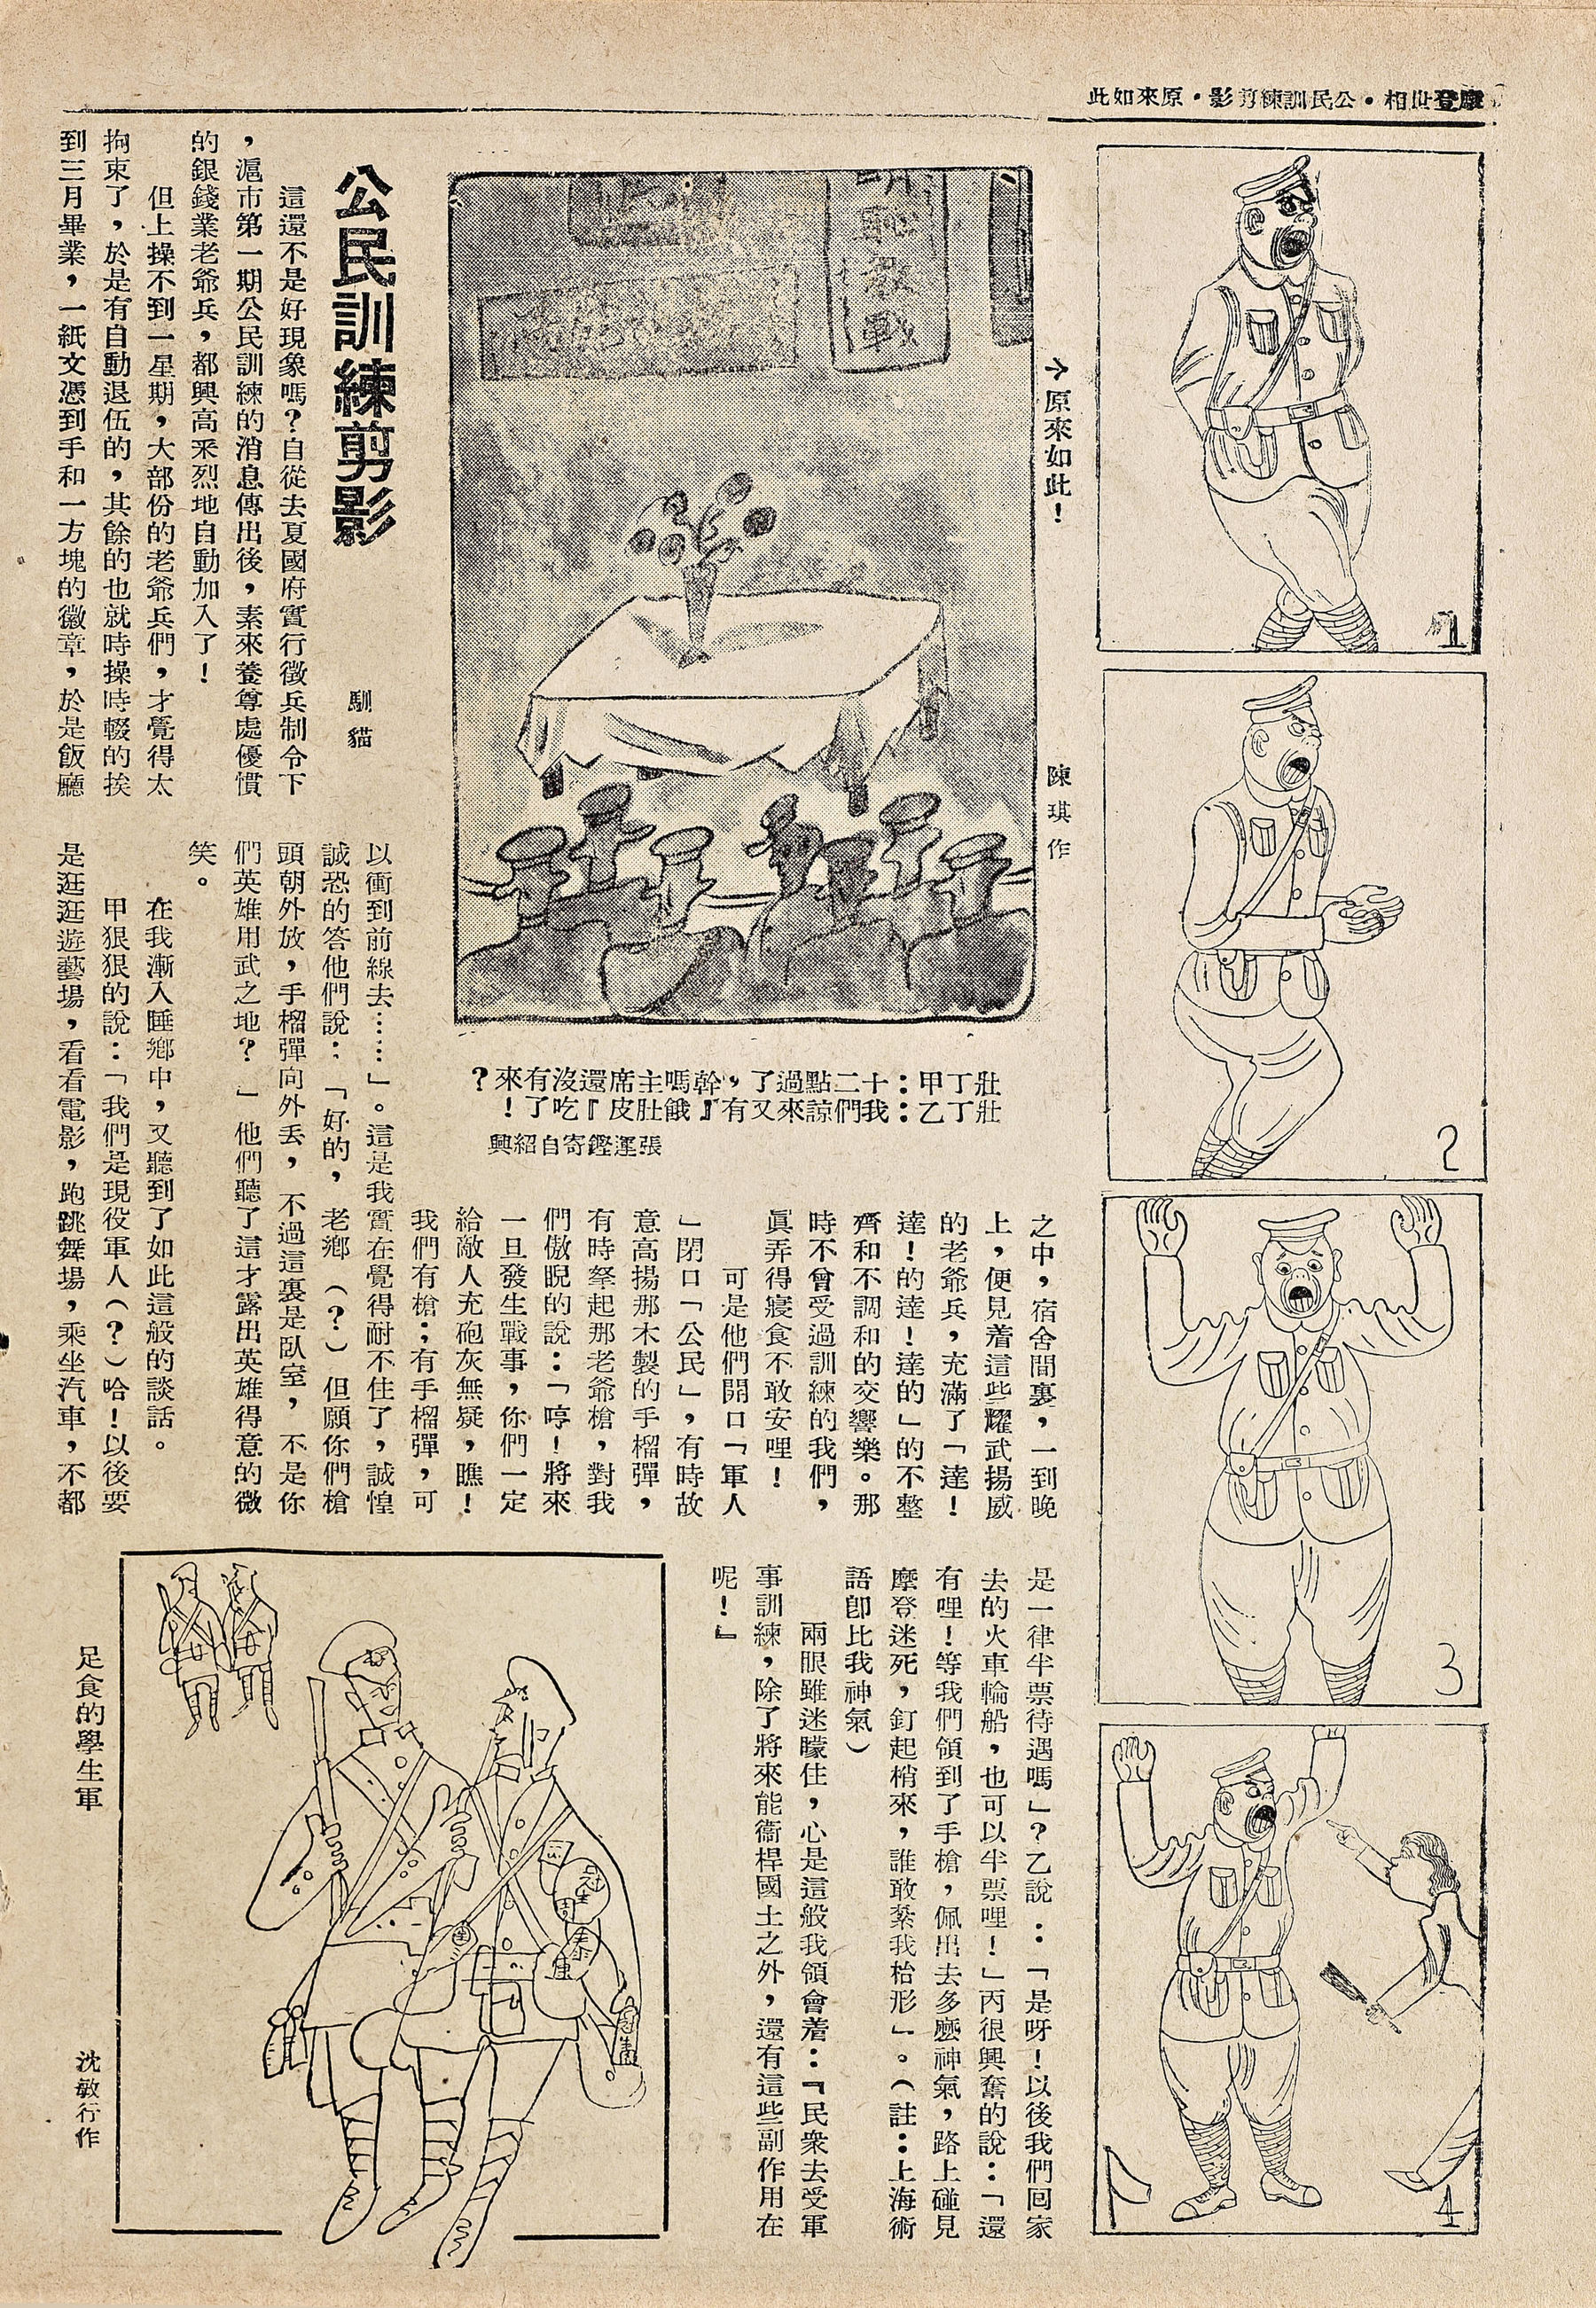 摩登世相・公民訓練剪影・原來如此
1
2
3
4
原來如此!
陳琪作
壯丁甲:十二點過了,幹嗎主席還沒有來?
壯丁乙:我們諒來又有『餓肚皮』吃了!
張運鏗寄自紹興
公民訓練剪影
馴貓
這還不是好現象嗎?自從去夏國府實行徵兵制令下
,滬市第一期公民訓練的消息傳出後,素來養尊處優慣
的銀錢業老爺兵,都興高釆烈地自動加入了!
但上操不到一星期,大部份的老爺兵們,才覺得太
拘束了,於是有自動退伍的,其餘的也就時操時輟的挨
到三月畢業,一紙文憑到手和一方塊的徽章,於是飯廳
之中,宿舍間裏,一到晚
上,便見着這些耀武揚威
的老爺兵,充滿了「達!
達!的達!達的」的不整
齊和不調和的交響樂。那
時不曾受過訓練的我們,
眞弄得寢食不敢安哩!
可是他們開口「軍人
」閉口「公民」,有時故
意高揚那木製的手榴彈,
有時拏起那老爺槍,對我
們傲睨的說:「哼!將來
一旦發生戰事,你們一定
給敵人充砲灰無疑,瞧!
我們有槍;有手榴彈,可
以衝到前線去……」。這是我實在覺得耐不住了,誠惶
誠恐的答他們說:「好的,老鄉(?)但願你們槍
頭朝外放,手榴彈向外丟,不過這裏是臥室,不是你
們英雄用武之地?」他們聽了這才露出英雄得意的微
笑。
在我漸入睡鄉中,又聽到了如此這般的談話。
甲狠狠的說:「我們是現役軍人(?)哈!以後要
是逛逛遊藝場,看看電影,跑跳舞場,乘坐汽車,不都
是一律半票待遇嗎」?乙說:「是呀!以後我們回家
去的火車輪船,也可以半票哩!」丙很興奮的說:「還
有哩!等我們領到了手槍,佩出去多麼神氣,路上碰見
摩登迷死,釘起梢來,誰敢紮我枱形」。(註:上海術
語卽比我神氣)
兩眼雖迷矇住,心是這般我領會着:『民衆去受軍
事訓練,除了將來能衞桿國土之外,還有這些副作用在
呢!』
足食的學生軍
沈敏行作